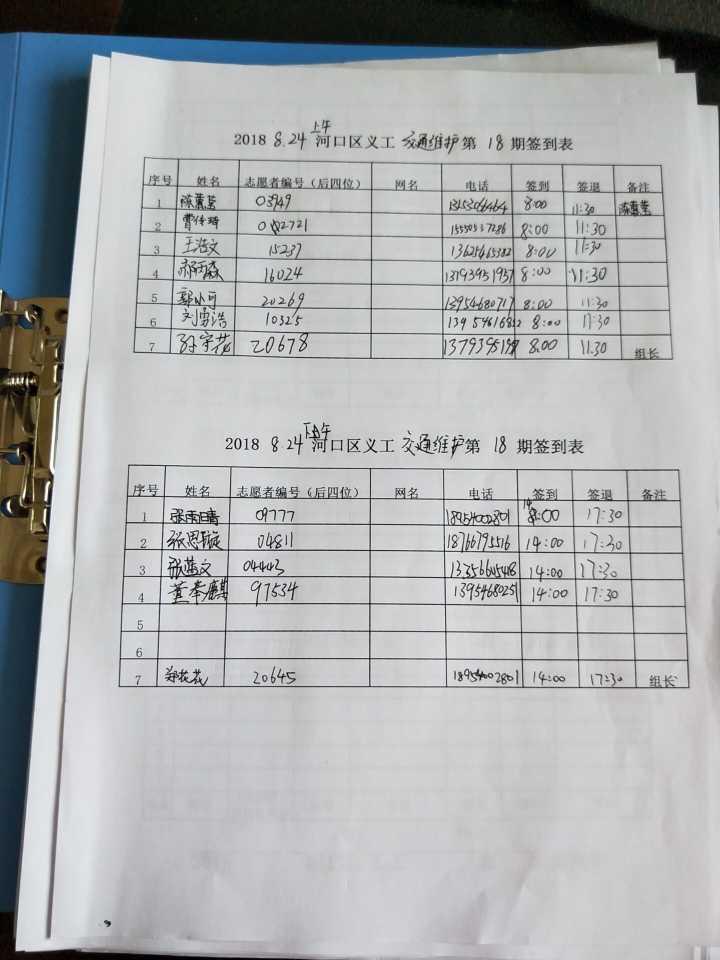 2018 8.24 上午 河口区义工 交通维护 第 18 期签到表
序号 姓名 志愿者编号（后四位） 网名 电话 签到 签退 备注
1 陈蕙莹 03949 8:00 11:30 陈蕙莹
2 02721 8:00 11:30
3 王浩文 15237 13625465382 8:00 11:30
4 郝丙森 16024 13793951957 8:00 11:30
5 郭小可 20269 13954680717 8:00 11:30
6 刘勇浩 10325 8:00 11:30
7 孙宗花 20678 8:00 11.30 组长
2018 8.24 下午 河口区义工 交通维护 第 18 期签到表
序号 姓名 志愿者编号（后四位） 网名 电话 签到 签退 备注
1 张雨晴 09777 18954002801 14:00 17:30
2 张思璇 04811 18766795516 14:00 17:30
3 张蓝文 04443 14:00 17:30
4 董奉麒 97534 1395468025 14:00 17:30
5
6
7 郑花花 20645 18954002801 14:00 17:30 组长